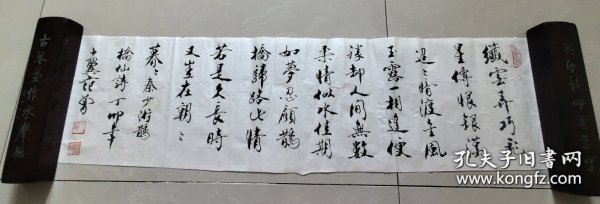 纖雲弄巧飛
星傳恨銀漢
迢〻暗渡金風
玉露一相逢便
勝却人間無數
柔情似水佳期
如夢忍顧鵲
橋歸路 情
若是久長時
又豈在朝〻
暮〻 秦少游鵲
橋仙詩 丁卯年
孔夫子旧书网
www.kongfz.com